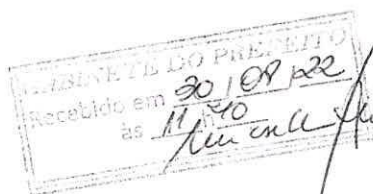 GABINETE DO PREFEITO
Recebido em 30 / 08 / 22
às 11:40